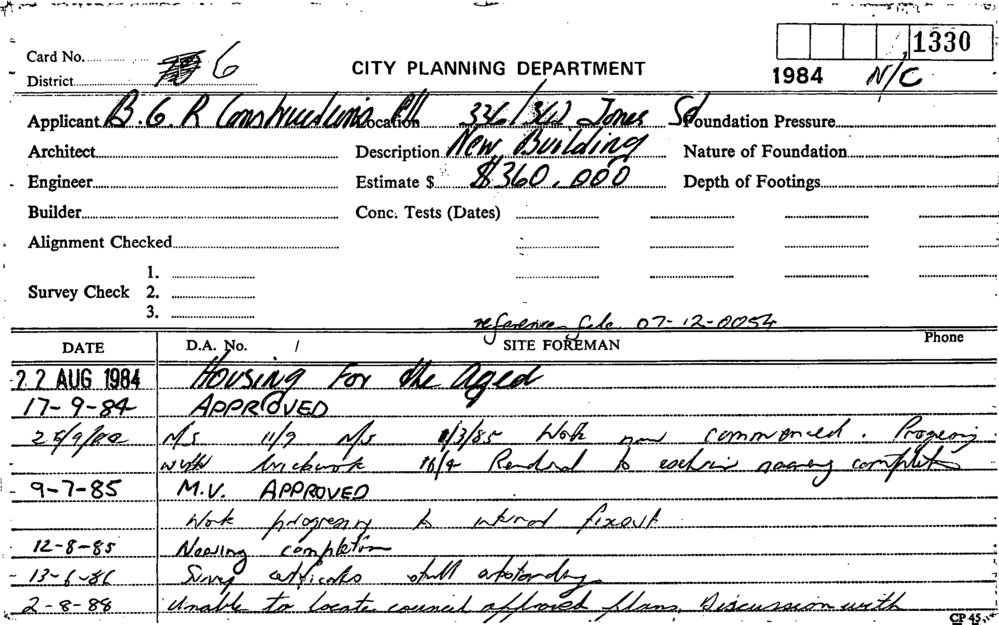 Card No. 6
1330
CITY PLANNING DEPARTMENT
District
1984 N/C
Applicant B.G.R Constructions P/L Location 336/362 Jones St Foundation Pressure
Architect Description New Building Nature of Foundation
Engineer Estimate $ $360,000 Depth of Footings
Builder Conc. Tests (Dates)
Alignment Checked
1.
Survey Check 2.
3.
reference file 07-12-0054
DATE D.A. No. / SITE FOREMAN Phone
22 AUG 1984 Housing For the Aged
17-9-84 APPROVED
N/S 11/2 N/S /3/85 Work now commenced. Progressing
with brickwork Rendered to exterior nearing completion
9-7-85 M.V. APPROVED
Work progressing to internal fixout
12-8-85 Nearing completion
13-6-86 Survey certificate still outstanding
2-8-88 Unable to locate council approved plans. Discussion with
CP 45